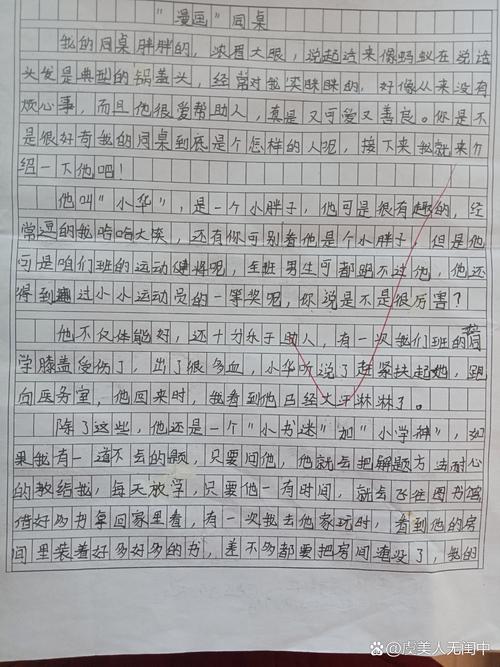 "漫画"同桌
我的同桌胖胖的，浓眉大眼，说起话来像蚂蚁在说话
头发是典型的锅盖头，经常对我笑眯眯的，好像从来没有
烦心事，而且他很爱帮助人，真是又可爱又善良。你是不
是很好奇我的同桌到底是个怎样的人呢，接下来我就来介
绍一下他吧！
他叫"小华"，是一个小胖子，他可是很有趣的，经
常逗的我哈哈大笑，还有你可别看他是个小胖子，但是他
可是咱们班的运动健将呢，全班男生可都跑不过他，他还
得到过小小运动员的一等奖呢，你说是不是很厉害？
他不仅体能好，还十分乐于助人，有一次我们班的同
学膝盖受伤了，出了很多血，小华听说了赶紧扶起她，跑
向医务室，他回来时，我看到他已经大汗淋淋了。
除了这些，他还是一个"小书迷"加"小学神"，如
果我有一道不会的题，只要问他，他就会把解题方法耐心
的教给我，每天放学，只要他一有时间，就会飞往图书馆
借好多书拿回家里看，有一次我去他家玩时，看到他的房
间里装着好多好多的书，差不多都要把房间淹没了，我的
虞美人无闰中